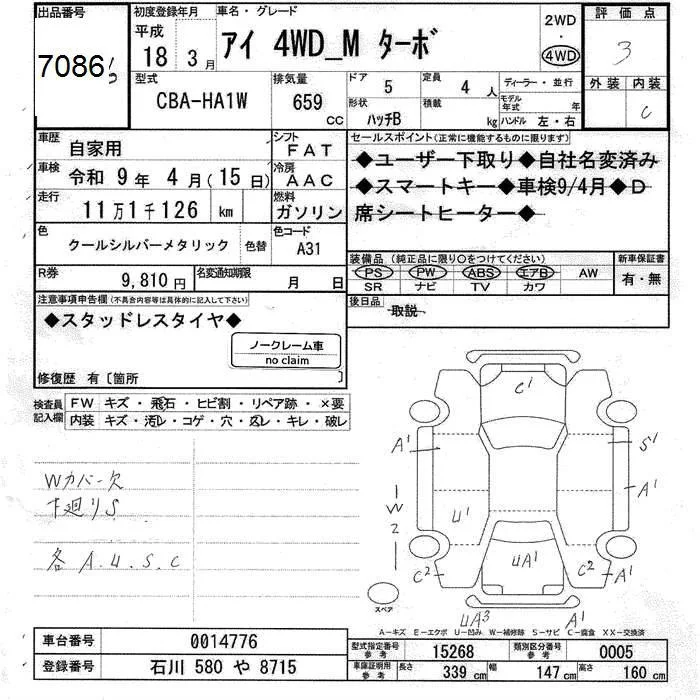 出品番号 初度登録年月 車名・グレード 2WD 評価点
7086 平成 18年 3月 アイ 4WD_M ターボ ・ 4WD 3
型式 排気量 ドア 5 定員 4人 ディーラー・並行 外装 内装
CBA-HA1W 659 CC 形状 ハッチB 積載 kg モデル年式 年 ハンドル 左・右 C
車歴 自家用 シフト FAT セールスポイント(正常に機能するものに限ります)
車検 令和 9年 4月(15日) 冷房 AAC ◆ユーザー下取り◆自社名変済み
走行 11万1千126 km 燃料 ガソリン ◆スマートキー◆車検9/4月◆D
席シートヒーター◆
色 クールシルバーメタリック 色替 色コード A31
装備品(純正品に限り○をつけてください) 新車保証書
R券 9,810円 名変通知期限 月 日 PS PW ABS エアB AW 有・無
SR ナビ TV カワ
注意事項申告欄(不具合内容等は具体的に記入して下さい) 後日品 取説
◆スタッドレスタイヤ◆
ノークレーム車
no claim
修復歴 有〔箇所 〕
検査員記入欄 FW キズ・飛石・ヒビ割・リペア跡・×要
内装 キズ・汚レ・コゲ・穴・スレ・キレ・破レ
C1
A1 S1
Wカバー欠 A1
下廻りS W2
U1
各 A.U.S.C UA1
C2 C2 A1
スペア
UA3 A1
A-キズ E-エクボ U-凹み W-補修跡 S-サビ C-腐食 XX-交換済
車台番号 0014776 型式指定番号 参考 15268 類別区分番号 参考 0005
登録番号 石川 580 や 8715 車庫証明用 参考 長さ 339 cm 幅 147 cm 高さ 160 cm